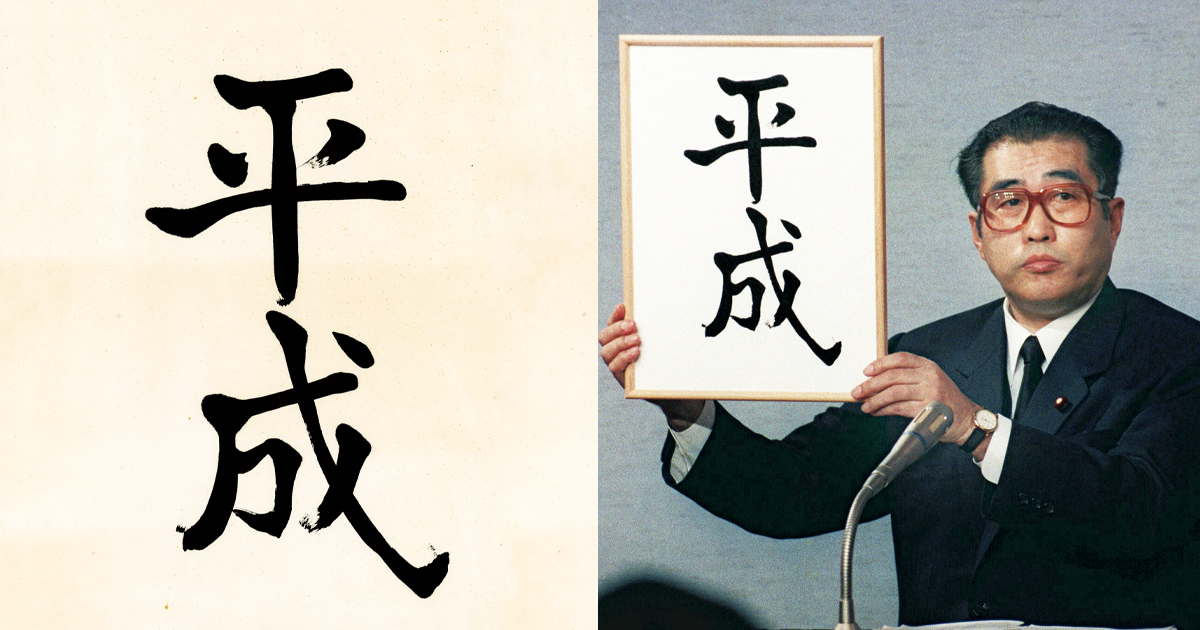 平成
平成